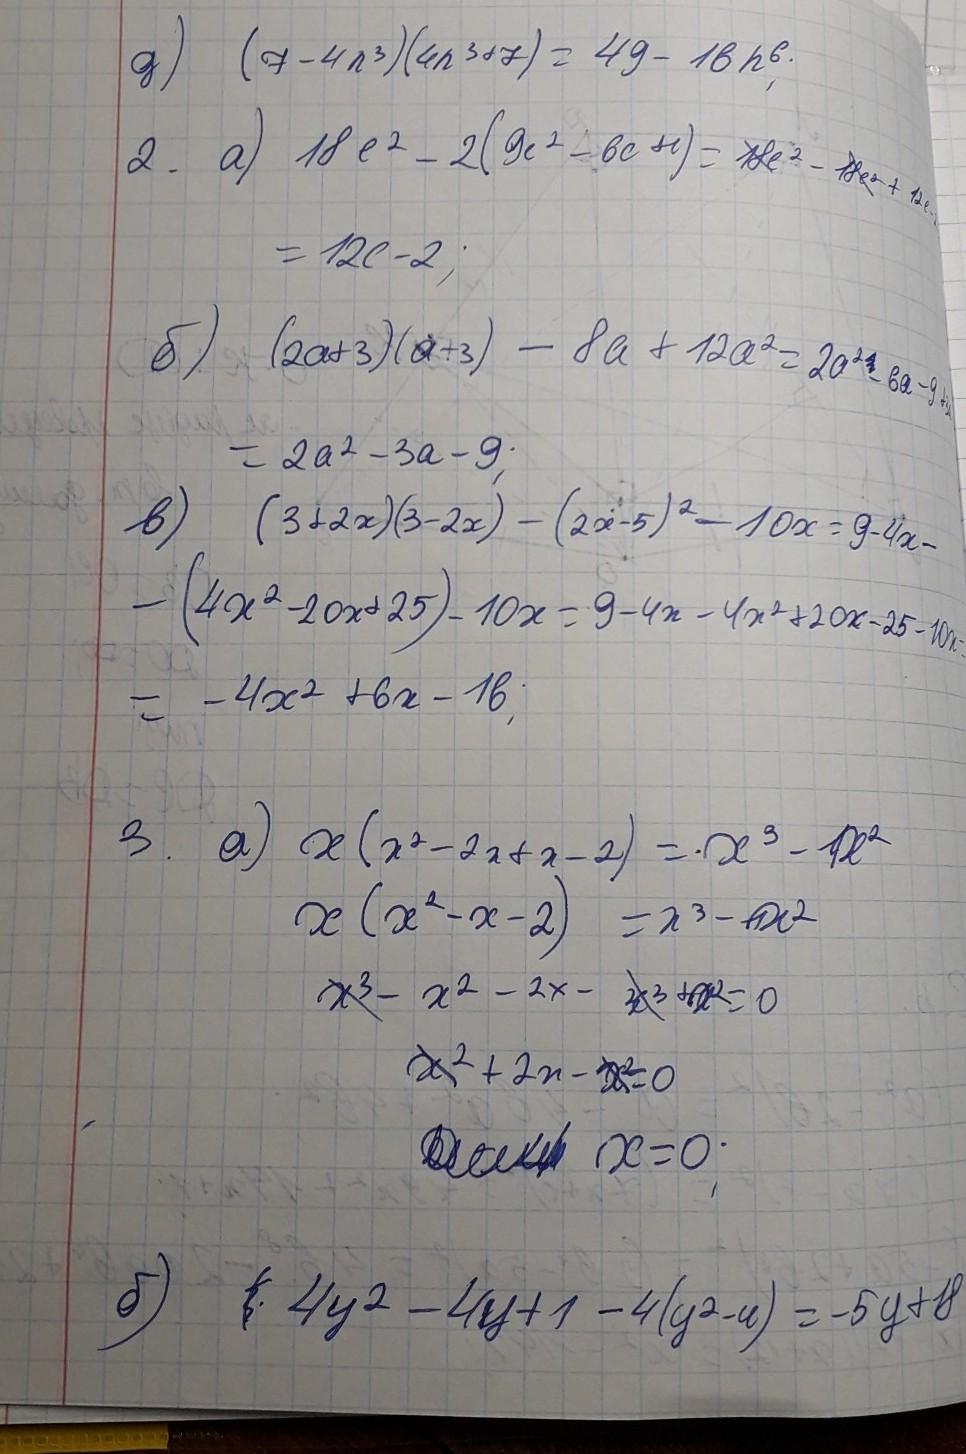 д) (7-4n³)(4n³+7) = 49 - 16n⁶;
2. а) 18c² - 2(9c² - 6c + 1) = 18c² - 18c² + 12c -
= 12c - 2;
б) (2a+3)(a+3) - 8a + 12a² = 2a² - 6a - 9
= 2a² - 3a - 9;
в) (3+2x)(3-2x) - (2x-5)² - 10x = 9-4x-
-(4x²-20x+25) - 10x = 9-4x-4x²+20x-25-10x=
= -4x² + 6x - 16;
3. а) x(x²-2x+x-2) = x³ - x²
x(x²-x-2) = x³ - x²
x³ - x² - 2x - x³ + x² = 0
x² + 2x - x² = 0
x = 0;
б) 4y² - 4y + 1 - 4(y²-4) = -5y+18